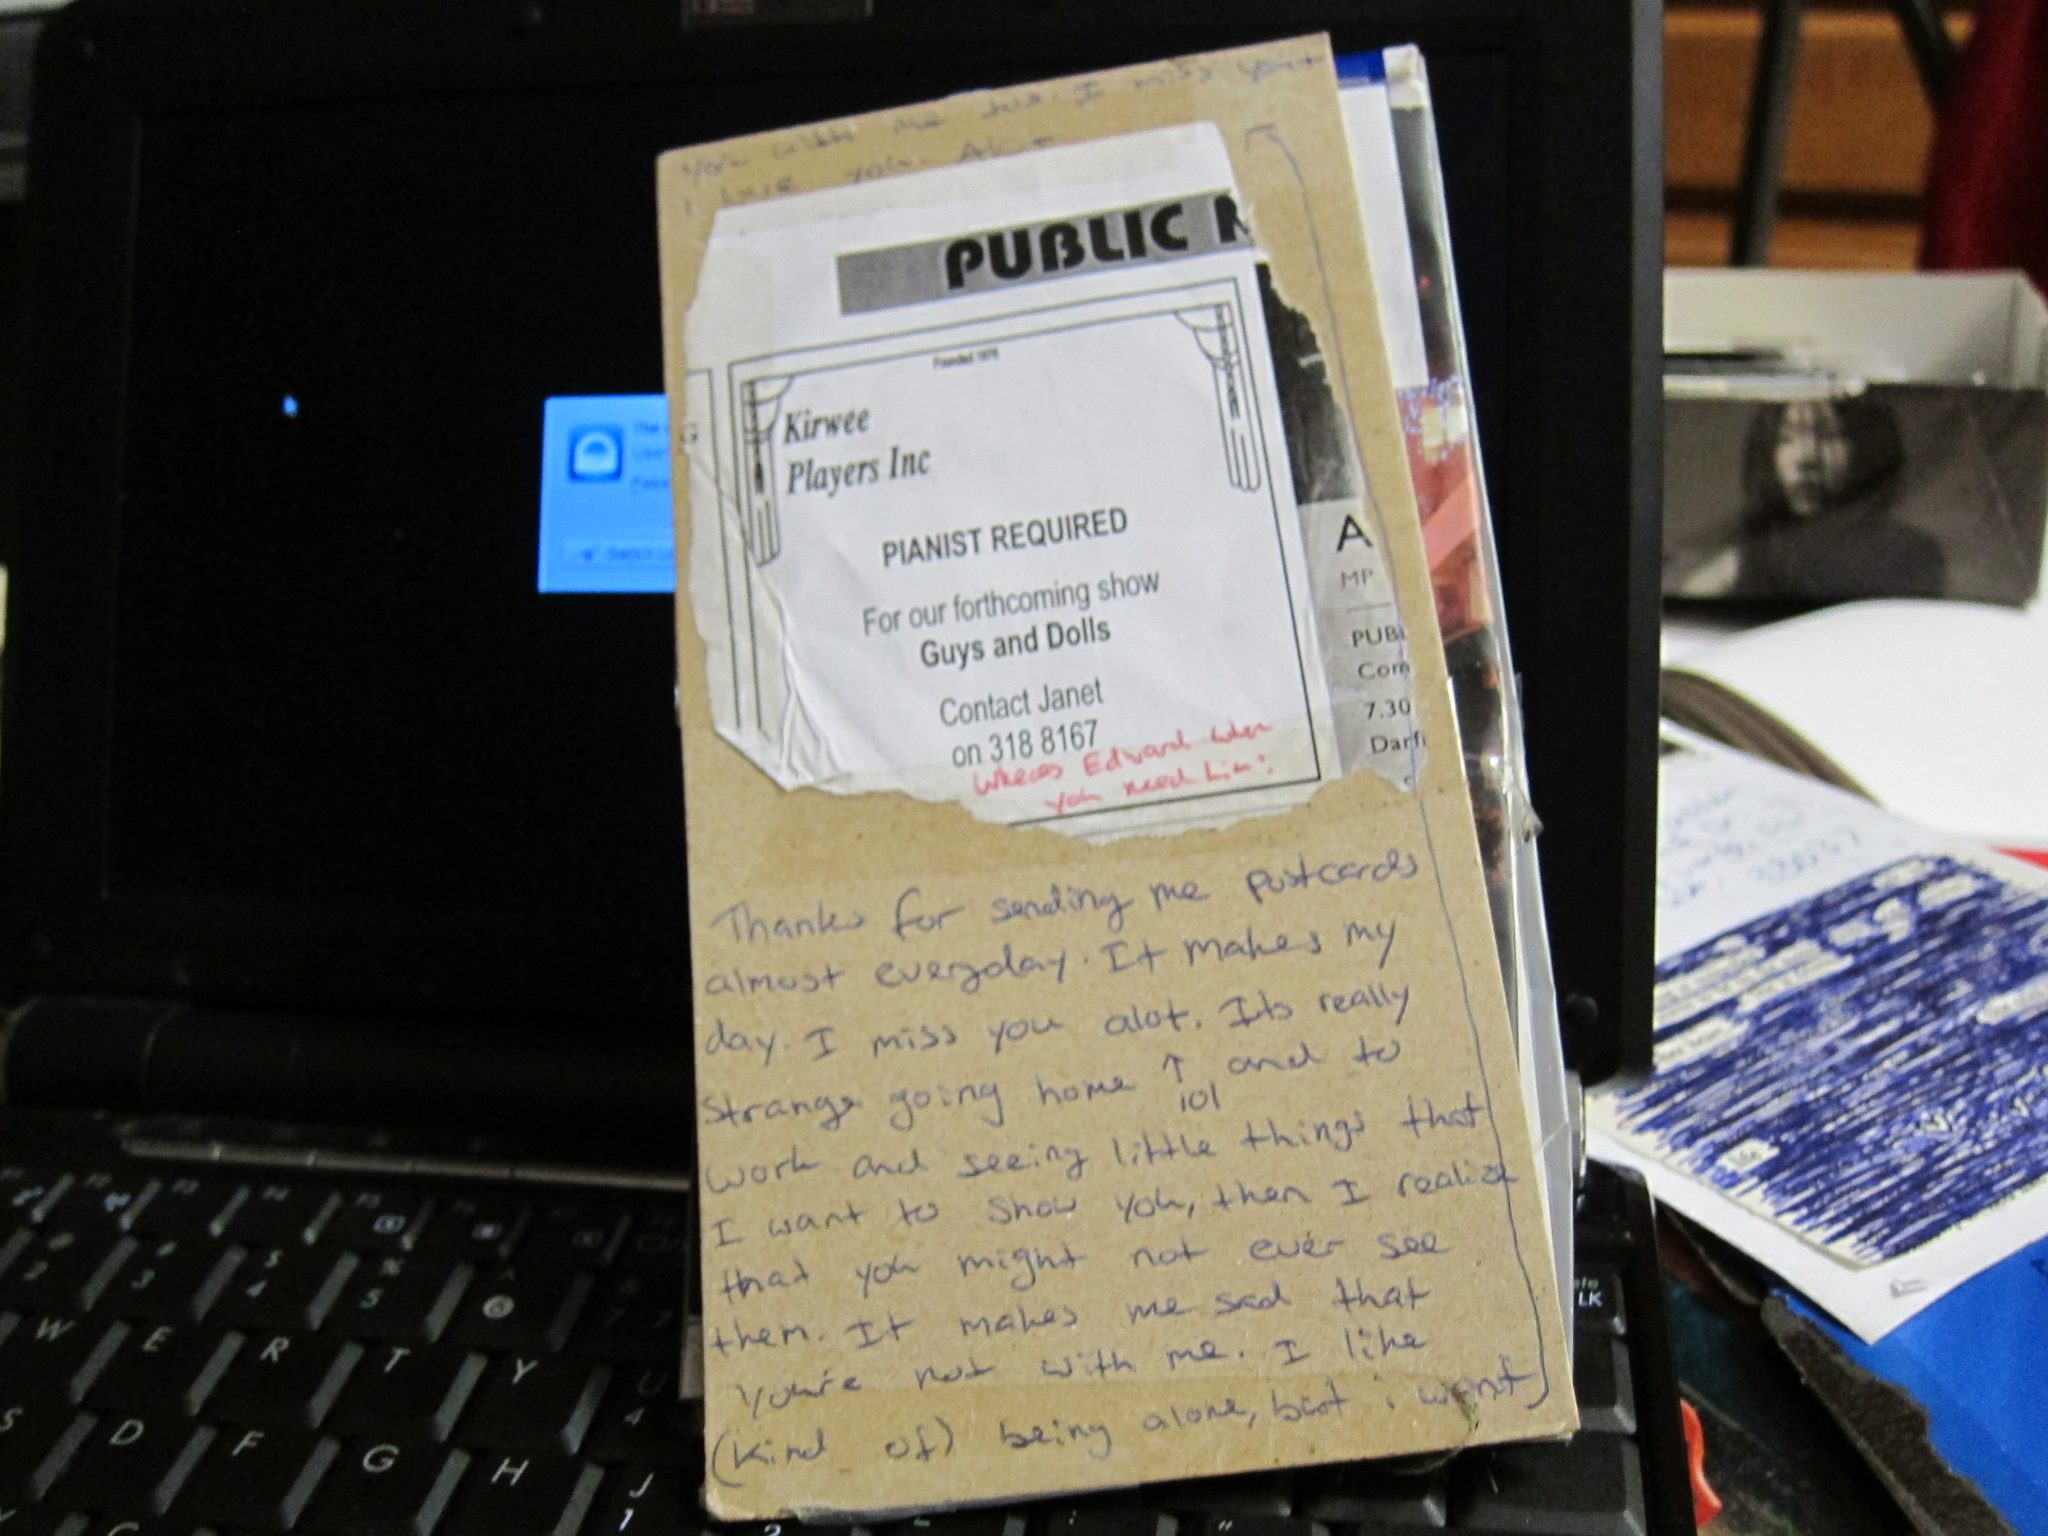 you with me too. I miss you
I love you.
PUBLIC N
Founded 1978
Kirwee
Players Inc
PIANIST REQUIRED
For our forthcoming show
Guys and Dolls
Contact Janet
on 318 8167
wheres Edward when
you need him?
G
A
MP
PUBL
Com
7.30
Darfi
Thanks for sending me postcards
almost everyday. It makes my
day. I miss you alot. Its really
strange going home ↑ and to
101
work and seeing little things that
I want to show you, then I realize
that you might not ever see
them. It makes me sad that
you're not with me. I like
(kind of) being alone, but i want
2
3
4
5
W
E
R
T
Y
U
4
S
D
F
G
H
J
1
LK